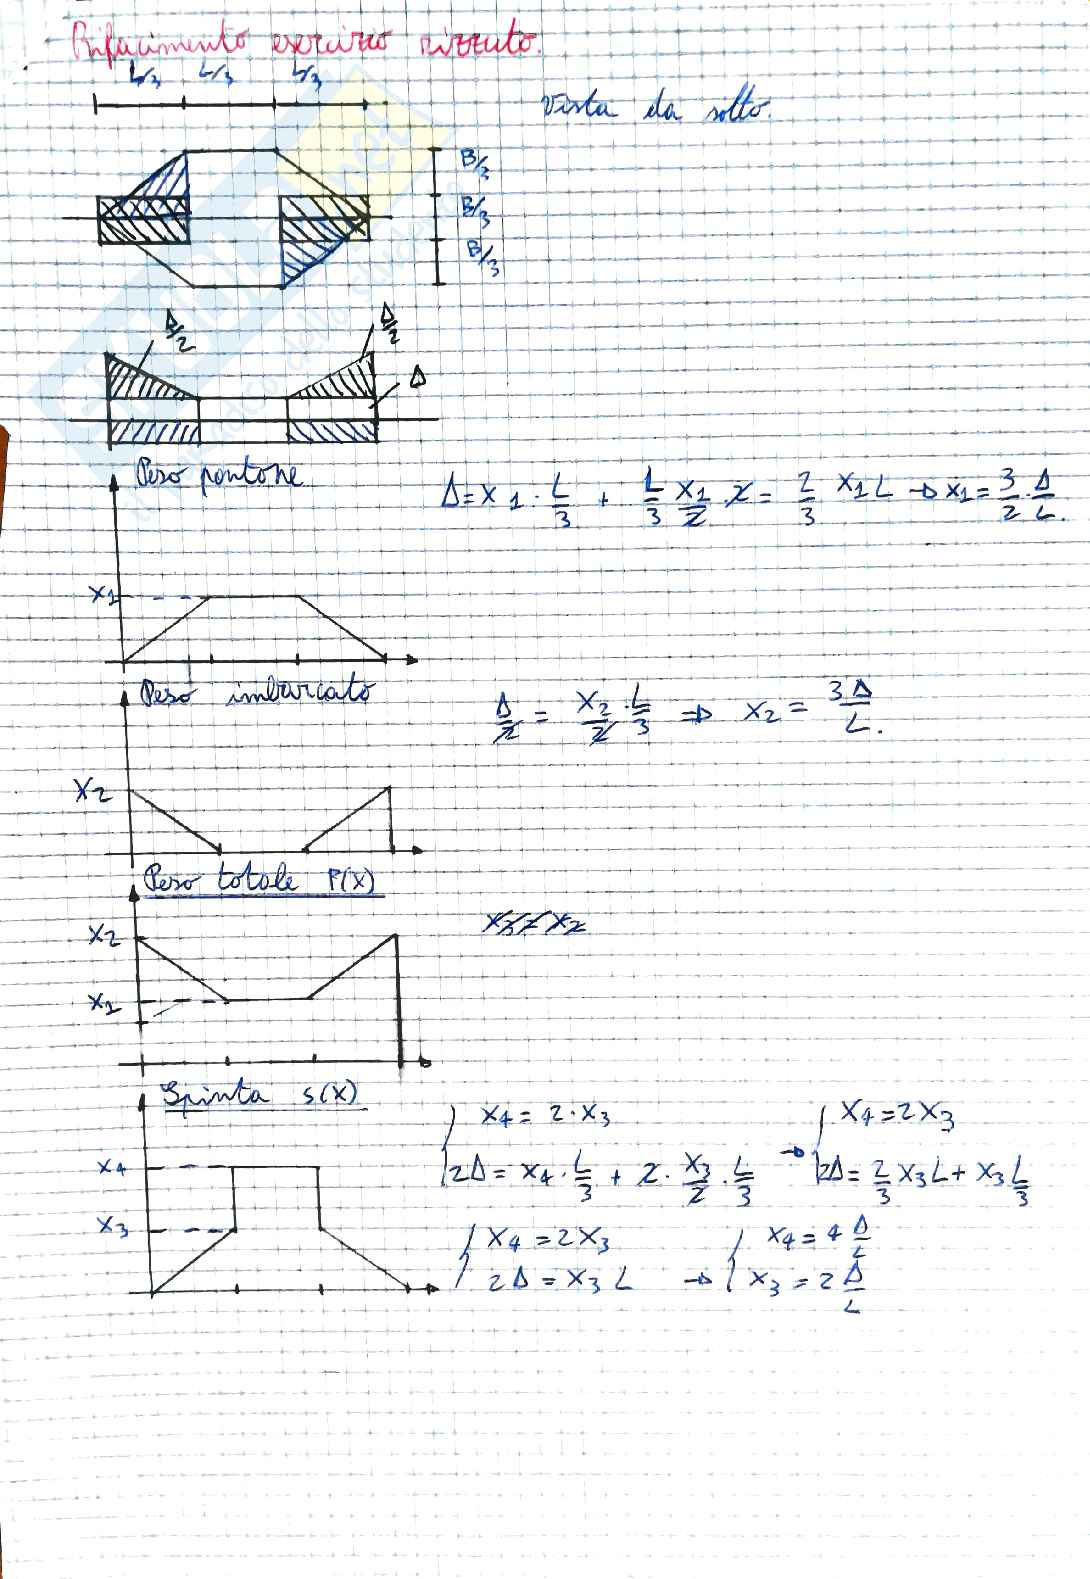 Rifacimento esercizio rizzuto.
L/3 L/3 L/3
Vista da sotto.
B/3
B/3
B/3
Δ/2 Δ/2
Δ
Peso pontone
Δ = x1 · L/3 + L/3 x1/2 · 2 = 2/3 x1 L → x1 = 3/2 · Δ/L.
x1
Peso imbarcato
Δ/2 = x2/2 · L/3 ⇒ x2 = 3Δ/L.
x2
Peso totale P(x)
x3 = x2
x2
x1
Spinta s(x)
x4 = 2·x3 x4 = 2x3
x4
2Δ = x4 · L/3 + 2 · x3/2 · L/3 → 2Δ = 2/3 x3 L + x3 L/3
x3
x4 = 2x3 x4 = 4 Δ/L
2Δ = x3 L → x3 = 2 Δ/L